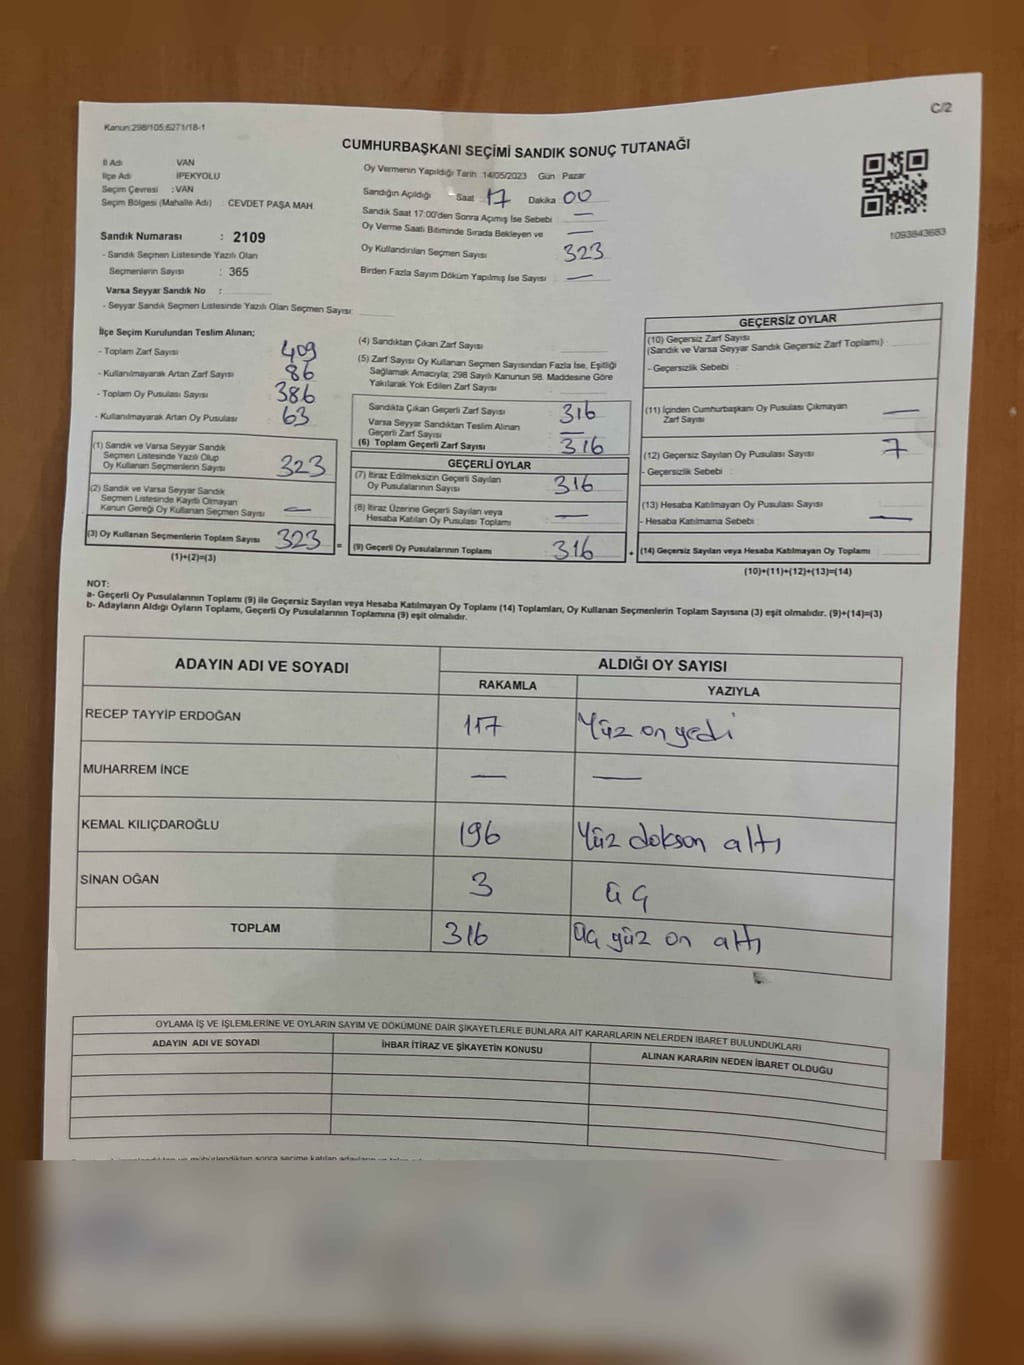 C/2
Kanun:298/105;6271/18-1
CUMHURBAŞKANI SEÇİMİ SANDIK SONUÇ TUTANAĞI
İl Adı VAN
İlçe Adı İPEKYOLU
Seçim Çevresi : VAN
Seçim Bölgesi (Mahalle Adı) CEVDET PAŞA MAH.
Sandık Numarası : 2109
- Sandık Seçmen Listesinde Yazılı Olan
Seçmenlerin Sayısı : 365
Varsa Seyyar Sandık No :
- Seyyar Sandık Seçmen Listesinde Yazılı Olan Seçmen Sayısı:
Oy Vermenin Yapıldığı Tarih :14/05/2023 Gün : Pazar
Sandığın Açıldığı Saat : 17 Dakika 00
Sandık Saat 17:00'den Sonra Açımış İse Sebebi : —
Oy Verme Saati Bitiminde Sırada Bekleyen ve —
Oy Kullandırılan Seçmen Sayısı : 323
Birden Fazla Sayım Döküm Yapılmış İse Sayısı : —
t093843683
İlçe Seçim Kurulundan Teslim Alınan;
- Toplam Zarf Sayısı : 409
- Kullanılmayarak Artan Zarf Sayısı : 86
- Toplam Oy Pusulası Sayısı : 386
- Kullanılmayarak Artan Oy Pusulası : 63
(1) Sandık ve Varsa Seyyar Sandık
Seçmen Listesinde Yazılı Olup
Oy Kullanan Seçmenlerin Sayısı : 323
(2) Sandık ve Varsa Seyyar Sandık
Seçmen Listesinde Kayıtlı Olmayan
Kanun Gereği Oy Kullanan Seçmen Sayısı : —
(3) Oy Kullanan Seçmenlerin Toplam Sayısı : 323
(1)+(2)=(3)
(4) Sandıktan Çıkan Zarf Sayısı :
(5) Zarf Sayısı Oy Kullanan Seçmen Sayısından Fazla İse, Eşitliği
Sağlamak Amacıyla; 298 Sayılı Kanunun 98. Maddesine Göre
Yakılarak Yok Edilen Zarf Sayısı :
Sandıkta Çıkan Geçerli Zarf Sayısı : 316
Varsa Seyyar Sandıktan Teslim Alınan
Geçerli Zarf Sayısı : —
(6) Toplam Geçerli Zarf Sayısı : 316
GEÇERLİ OYLAR
(7) İtiraz Edilmeksizin Geçerli Sayılan
Oy Pusulalarının Sayısı : 316
(8) İtiraz Üzerine Geçerli Sayılan veya
Hesaba Katılan Oy Pusulası Toplamı : —
= (9) Geçerli Oy Pusulalarının Toplamı : 316
GEÇERSİZ OYLAR
(10) Geçersiz Zarf Sayısı
(Sandık ve Varsa Seyyar Sandık Geçersiz Zarf Toplamı)
- Geçersizlik Sebebi :
(11) İçinden Cumhurbaşkanı Oy Pusulası Çıkmayan
Zarf Sayısı : —
(12) Geçersiz Sayılan Oy Pusulası Sayısı : 7
- Geçersizlik Sebebi :
(13) Hesaba Katılmayan Oy Pusulası Sayısı :
- Hesaba Katılmama Sebebi : —
+ (14) Geçersiz Sayılan veya Hesaba Katılmayan Oy Toplamı :
(10)+(11)+(12)+(13)=(14)
NOT:
a- Geçerli Oy Pusulalarının Toplamı (9) ile Geçersiz Sayılan veya Hesaba Katılmayan Oy Toplamı (14) Toplamları, Oy Kullanan Seçmenlerin Toplam Sayısına (3) eşit olmalıdır. (9)+(14)=(3)
b- Adayların Aldığı Oyların Toplamı, Geçerli Oy Pusulalarının Toplamına (9) eşit olmalıdır.
ADAYIN ADI VE SOYADI ALDIĞI OY SAYISI
RAKAMLA YAZIYLA
RECEP TAYYİP ERDOĞAN 117 Yüz onyedi
MUHARREM İNCE — —
KEMAL KILIÇDAROĞLU 196 Yüz doksan altı
SİNAN OĞAN 3 üç
TOPLAM 316 üç yüz on altı
OYLAMA İŞ VE İŞLEMLERİNE VE OYLARIN SAYIM VE DÖKÜMÜNE DAİR ŞİKAYETLERLE BUNLARA AİT KARARLARIN NELERDEN İBARET BULUNDUKLARI
ADAYIN ADI VE SOYADI İHBAR İTİRAZ VE ŞİKAYETİN KONUSU ALINAN KARARIN NEDEN İBARET OLDUĞU